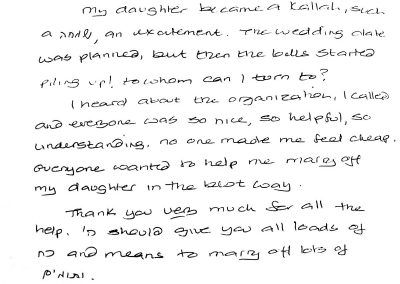 My daughter became a Kallah, such
a, an excitement. The wedding date
was planned, but then the bills started
piling up! to whom can I turn to?
I heard about the organization, I called
and everyone was so nice, so helpful, so
understanding. no one made me feel cheap.
everyone wanted to help me marry off
my daughter in the best way.
Thank you very much for all the
help. 'ה should give you all loads of
כח and means to marry off lots of